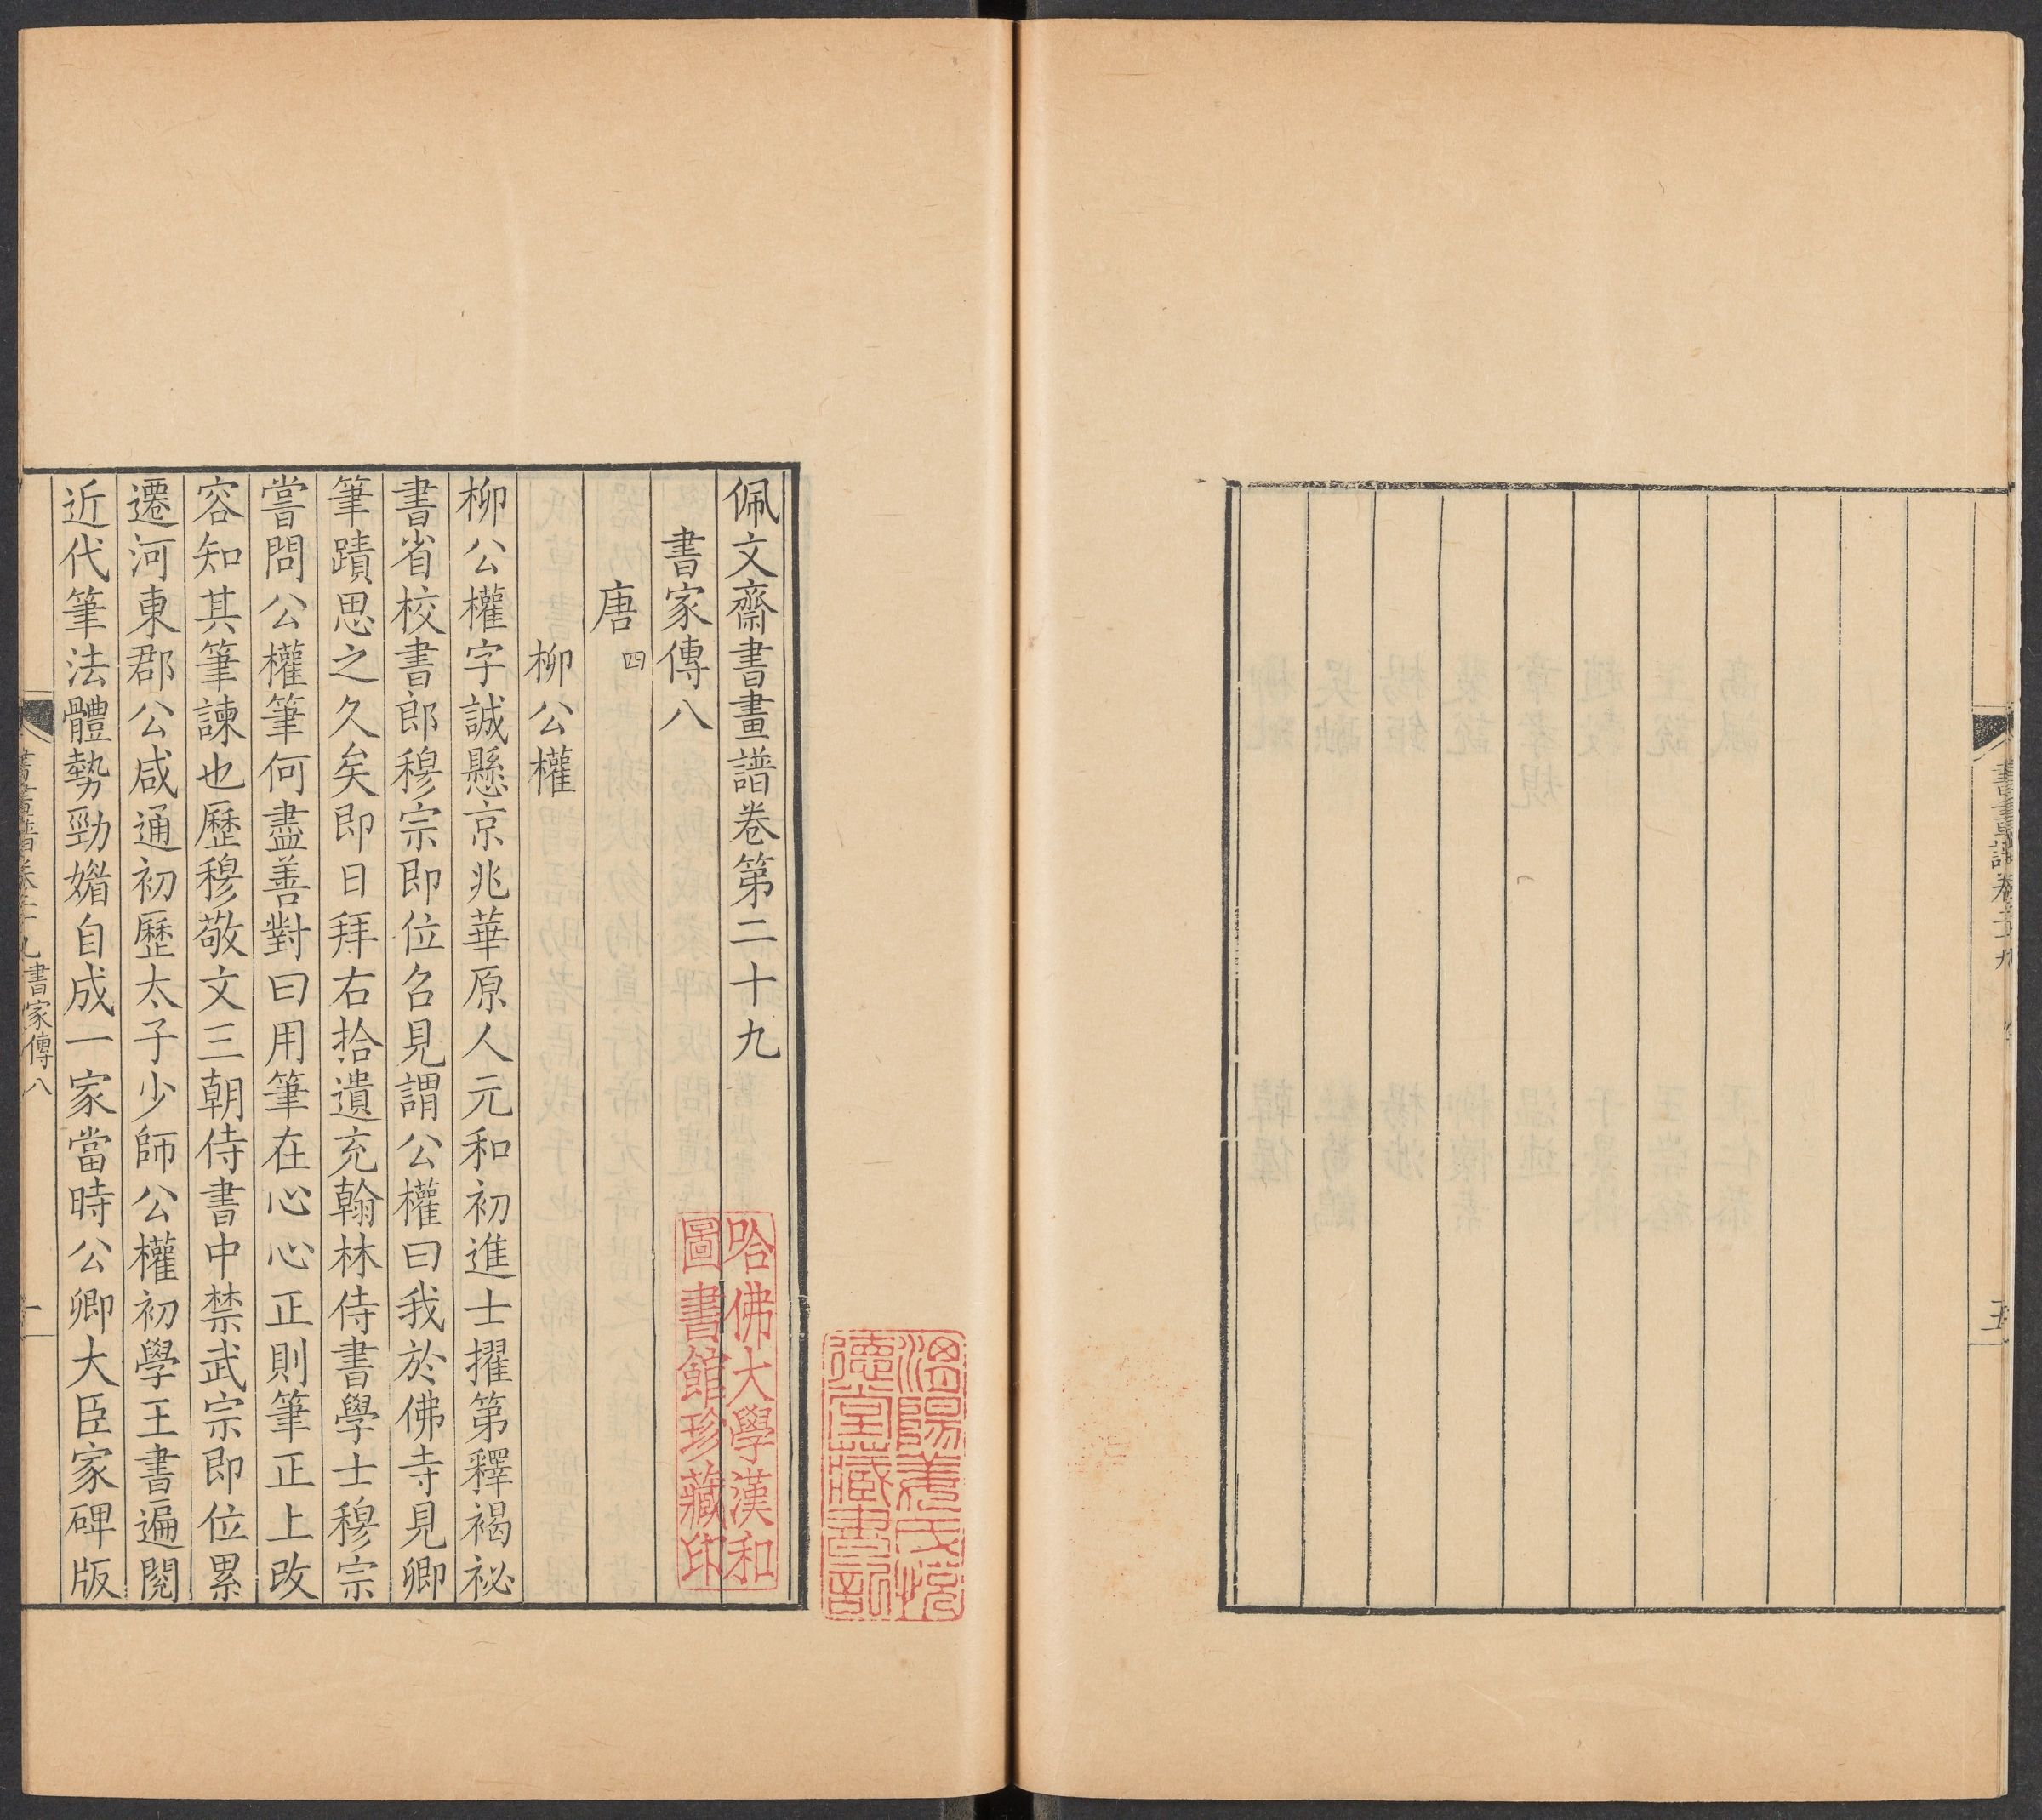 佩文齋書畫譜卷第二十九
書家傳八
唐四
柳公權
柳公權字誠懸京兆華原人元和初進士擢第釋褐祕
書省校書郎穆宗即位召見謂公權曰我於佛寺見卿
筆蹟思之久矣即日拜右拾遺充翰林侍書學士穆宗
嘗問公權筆何盡善對曰用筆在心心正則筆正上改
容知其筆諫也歷穆敬文三朝侍書中禁武宗即位累
遷河東郡公咸通初歷太子少師公權初學王書遍閱
近代筆法體勢勁媚自成一家當時公卿大臣家碑版
書家傳八
哈佛大學漢和
圖書館珍藏印
德堂藏書記